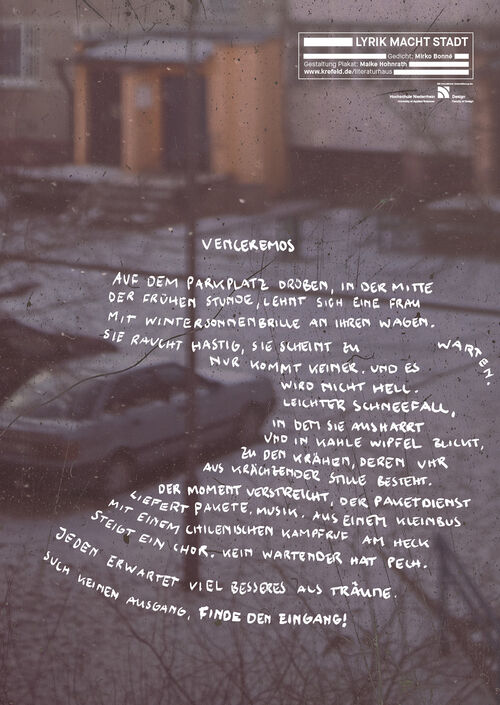 LYRIK MACHT STADT
Gedicht: Mirko Bonné
Gestaltung Plakat: Maike Hohnrath
www.krefeld.de/literaturhaus
Hochschule Niederrhein
University of Applied Sciences
Design
Faculty of Design
VENCEREMOS
AUF DEM PARKPLATZ DRÜBEN, IN DER MITTE
DER FRÜHEN STUNDE, LEHNT SICH EINE FRAU
MIT WINTERSONNENBRILLE AN IHREN WAGEN.
SIE RAUCHT HASTIG, SIE SCHEINT ZU WARTEN.
NUR KOMMT KEINER. UND ES
WIRD NICHT HELL.
LEICHTER SCHNEEFALL,
IN DEM SIE AUSHARRT
UND IN KAHLE WIPFEL BLICKT,
ZU DEN KRÄHEN, DEREN UHR
AUS KRÄCHZENDER STILLE BESTEHT.
DER MOMENT VERSTREICHT, DER PAKETDIENST
LIEFERT PAKETE. MUSIK. AUS EINEM KLEINBUS
MIT EINEM CHILENISCHEN KAMPFRUF AM HECK
STEIGT EIN CHOR. KEIN WARTENDER HAT PECH.
JEDEN ERWARTET VIEL BESSERES ALS TRÄUME.
SUCH KEINEN AUSGANG, FINDE DEN EINGANG!